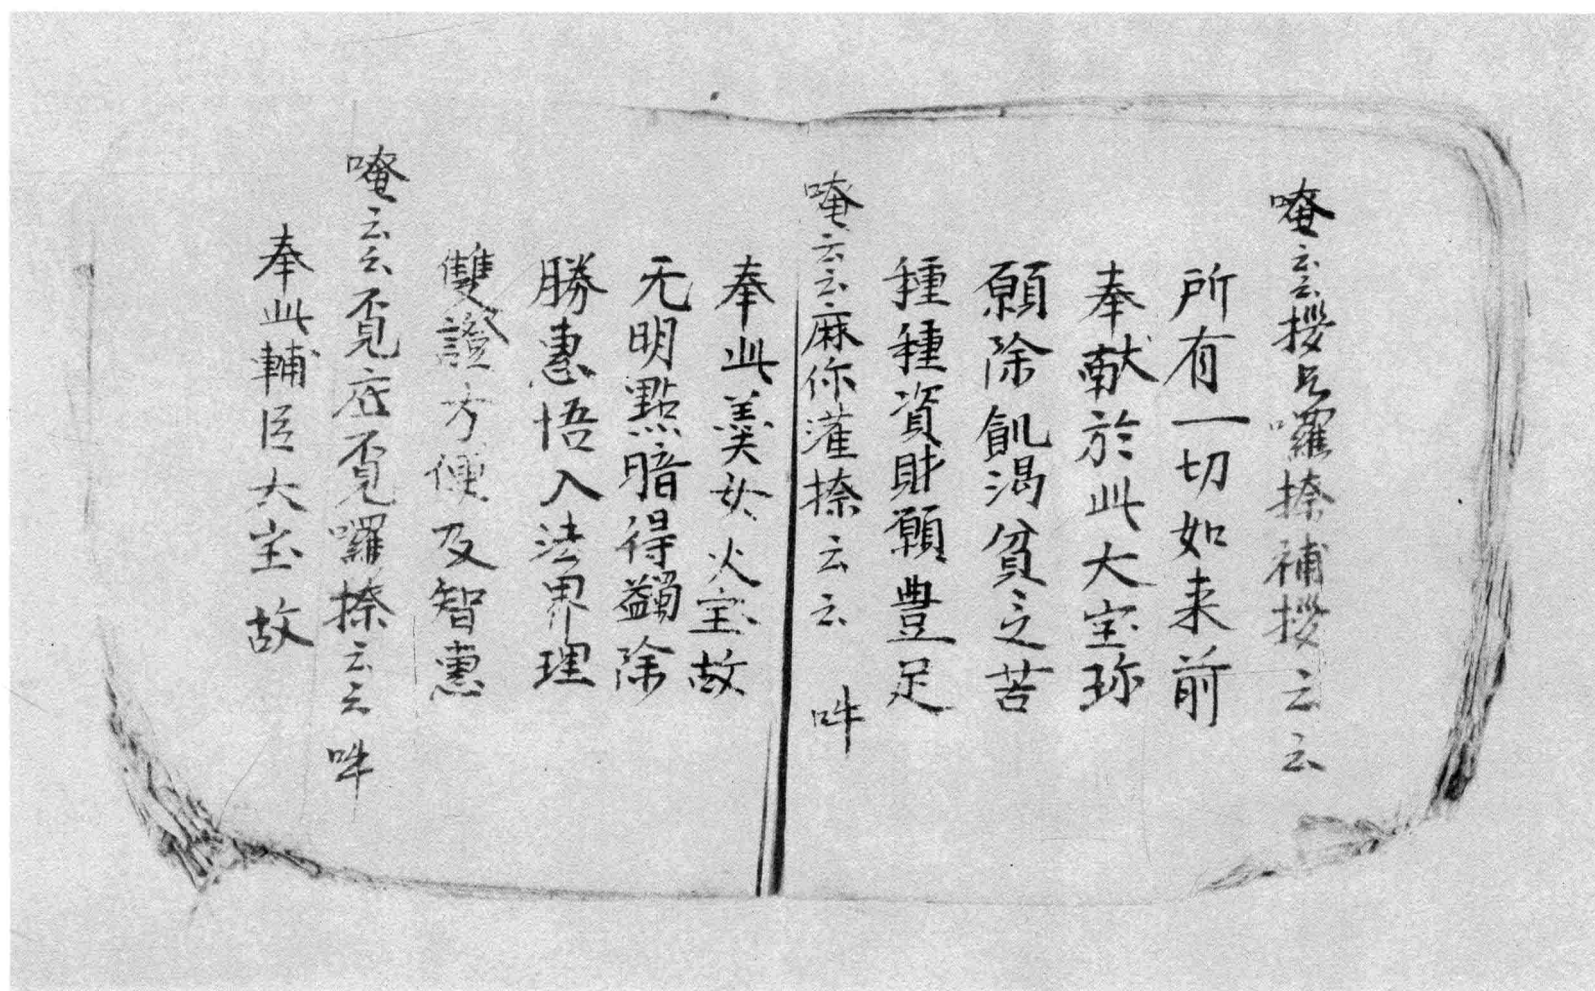 唵云云拶吃囉捺補拶云云
所有一切如来前
奉献於此大宝珎
願除飢渴貧之苦
種種資財願豊足
唵云云麻你灌捺云云 吽
奉此美女大宝故
无明黑暗得蠲除
勝惠悟入法界理
雙證方便及智惠
唵云云覔底覔囉捺云云 吽
奉此輔臣大宝故